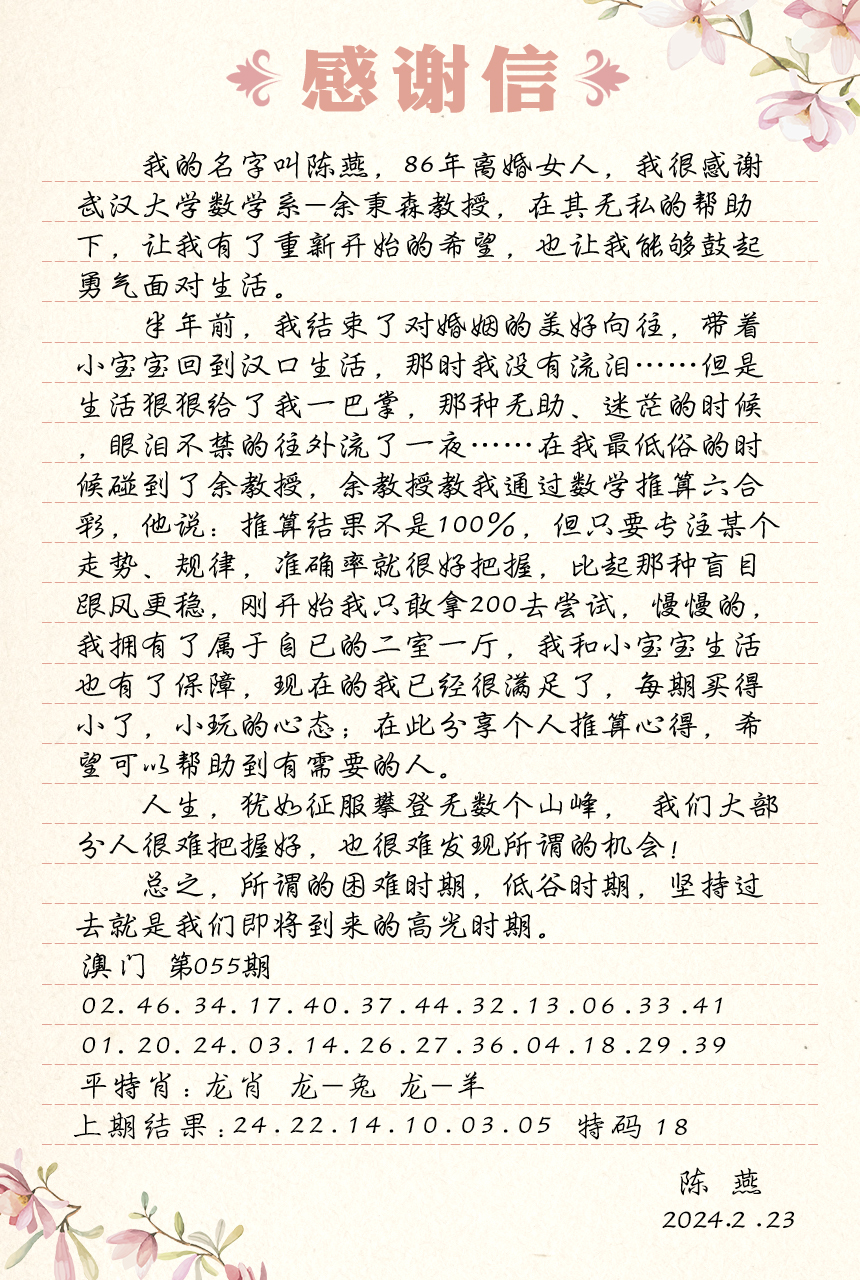 感谢信
我的名字叫陈燕，86年离婚女人，我很感谢
武汉大学数学系—余秉森教授，在其无私的帮助
下，让我有了重新开始的希望，也让我能够鼓起
勇气面对生活。
半年前，我结束了对婚姻的美好向往，带着
小宝宝回到汉口生活，那时我没有流泪……但是
生活狠狠给了我一巴掌，那种无助、迷茫的时候
，眼泪不禁的往外流了一夜……在我最低俗的时
候碰到了余教授，余教授教我通过数学推算六合
彩，他说：推算结果不是100%，但只要专注某个
走势、规律，准确率就很好把握，比起那种盲目
跟风更稳，刚开始我只敢拿200去尝试，慢慢的，
我拥有了属于自已的二室一厅，我和小宝宝生活
也有了保障，现在的我已经很满足了，每期买得
小了，小玩的心态；在此分享个人推算心得，希
望可以帮助到有需要的人。
人生，犹如征服攀登无数个山峰， 我们大部
分人很难把握好，也很难发现所谓的机会！
总之，所谓的困难时期，低谷时期，坚持过
去就是我们即将到来的高光时期。
澳门 第055期
02.46.34.17.40.37.44.32.13.06.33.41
01.20.24.03.14.26.27.36.04.18.29.39
平特肖：龙肖 龙—兔 龙—羊
上期结果：24.22.14.10.03.05 特码 18
陈 燕
2024.2.23